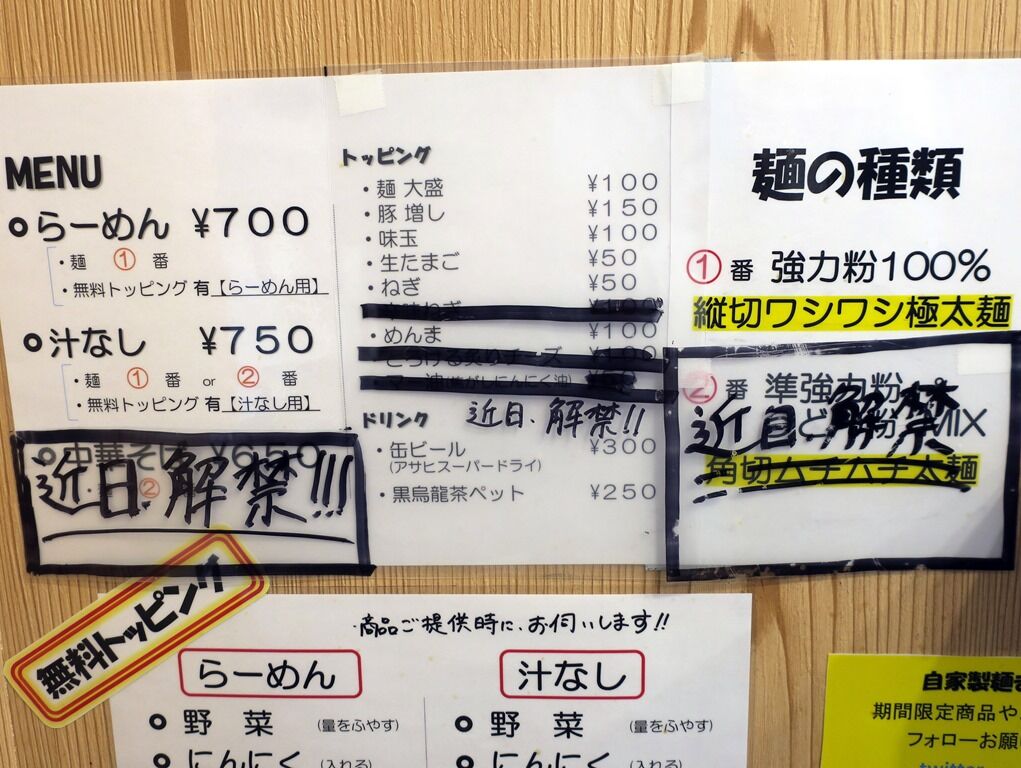 MENU
らーめん ¥700
・麺 ① 番
・無料トッピング 有【らーめん用】
汁なし ¥750
・麺 ① 番 or ② 番
・無料トッピング 有【汁なし用】
中華そば ¥650
②
近日 解禁!!!
無料トッピング
トッピング
・麺 大盛 ¥100
・豚 増し ¥150
・味玉 ¥100
・生たまご ¥50
・ねぎ ¥50
¥100
・めんま ¥100
とろける炙りチーズ ¥100
・マー油(焦がしにんにく油)
近日、解禁!!
ドリンク
・缶ビール ¥300
(アサヒスーパードライ)
・黒烏龍茶ペット ¥250
麺の種類
①番 強力粉100%
縦切ワシワシ極太麺
②番 準強力粉
MIX
近日 解禁
角切ムチムチ太麺
商品ご提供時に、お伺いします!!
らーめん
野 菜 (量をふやす)
にんにく (入れる)
汁なし
野 菜 (量をふやす)
にんにく (入れる)
自家製麺
期間限定商品や
フォローお願
twitter